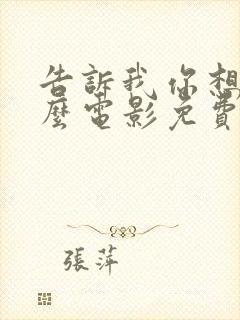 告訴我你想
麼電影免費
張萍